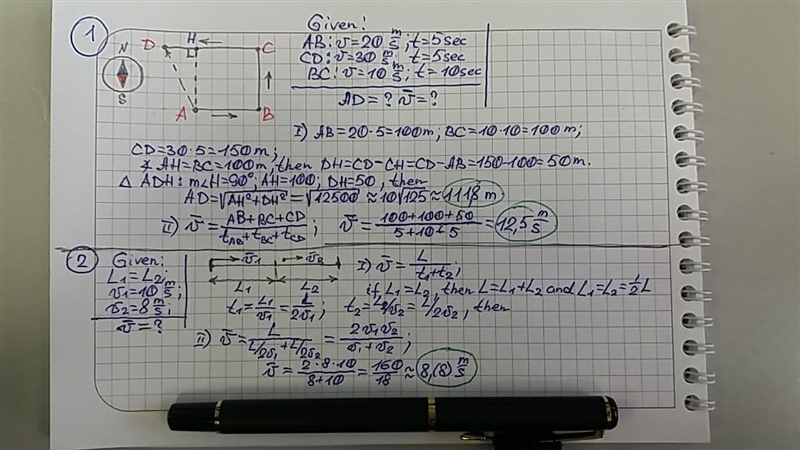 1
N
S
D H C
A B
Given:
AB: v=20 m/s; t=5sec
CD: v=30 m/s; t=5sec
BC: v=10 m/s; t=10sec
AD=? v̄=?
I) AB=20·5=100m; BC=10·10=100m;
CD=30·5=150m;
* AH=BC=100m, then DH=CD-CH=CD-AB=150-100=50m.
△ ADH: m∠H=90°; AH=100; DH=50, then
AD=√(AH²+DH²)=√12500≈10√125≈111,8 m
II) v̄=(AB+BC+CD)/(t_AB+t_BC+t_CD); v̄=(100+100+50)/(5+10+5)=12,5 m/s
2
Given:
L₁=L₂;
v₁=10 m/s;
v₂=8 m/s;
v̄=?
v̄₁ v̄₂
L₁ L₂
I) v̄=L/(t₁+t₂);
if L₁=L₂, then L=L₁+L₂ and L₁=L₂=½L
t₁=L₁/v₁=L/2v₁; t₂=L₂/v₂=L/2v₂, then
II) v̄=L/(L/2v₁+L/2v₂)=2v₁v₂/(v₁+v₂);
v̄=(2·8·10)/(8+10)=160/18≈8,(8) m/s